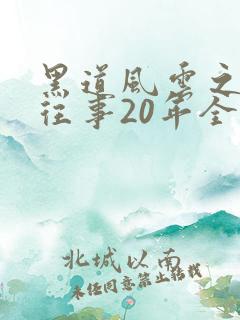 黑道风云之
往事20年全
北城以南
未经同意禁止转载